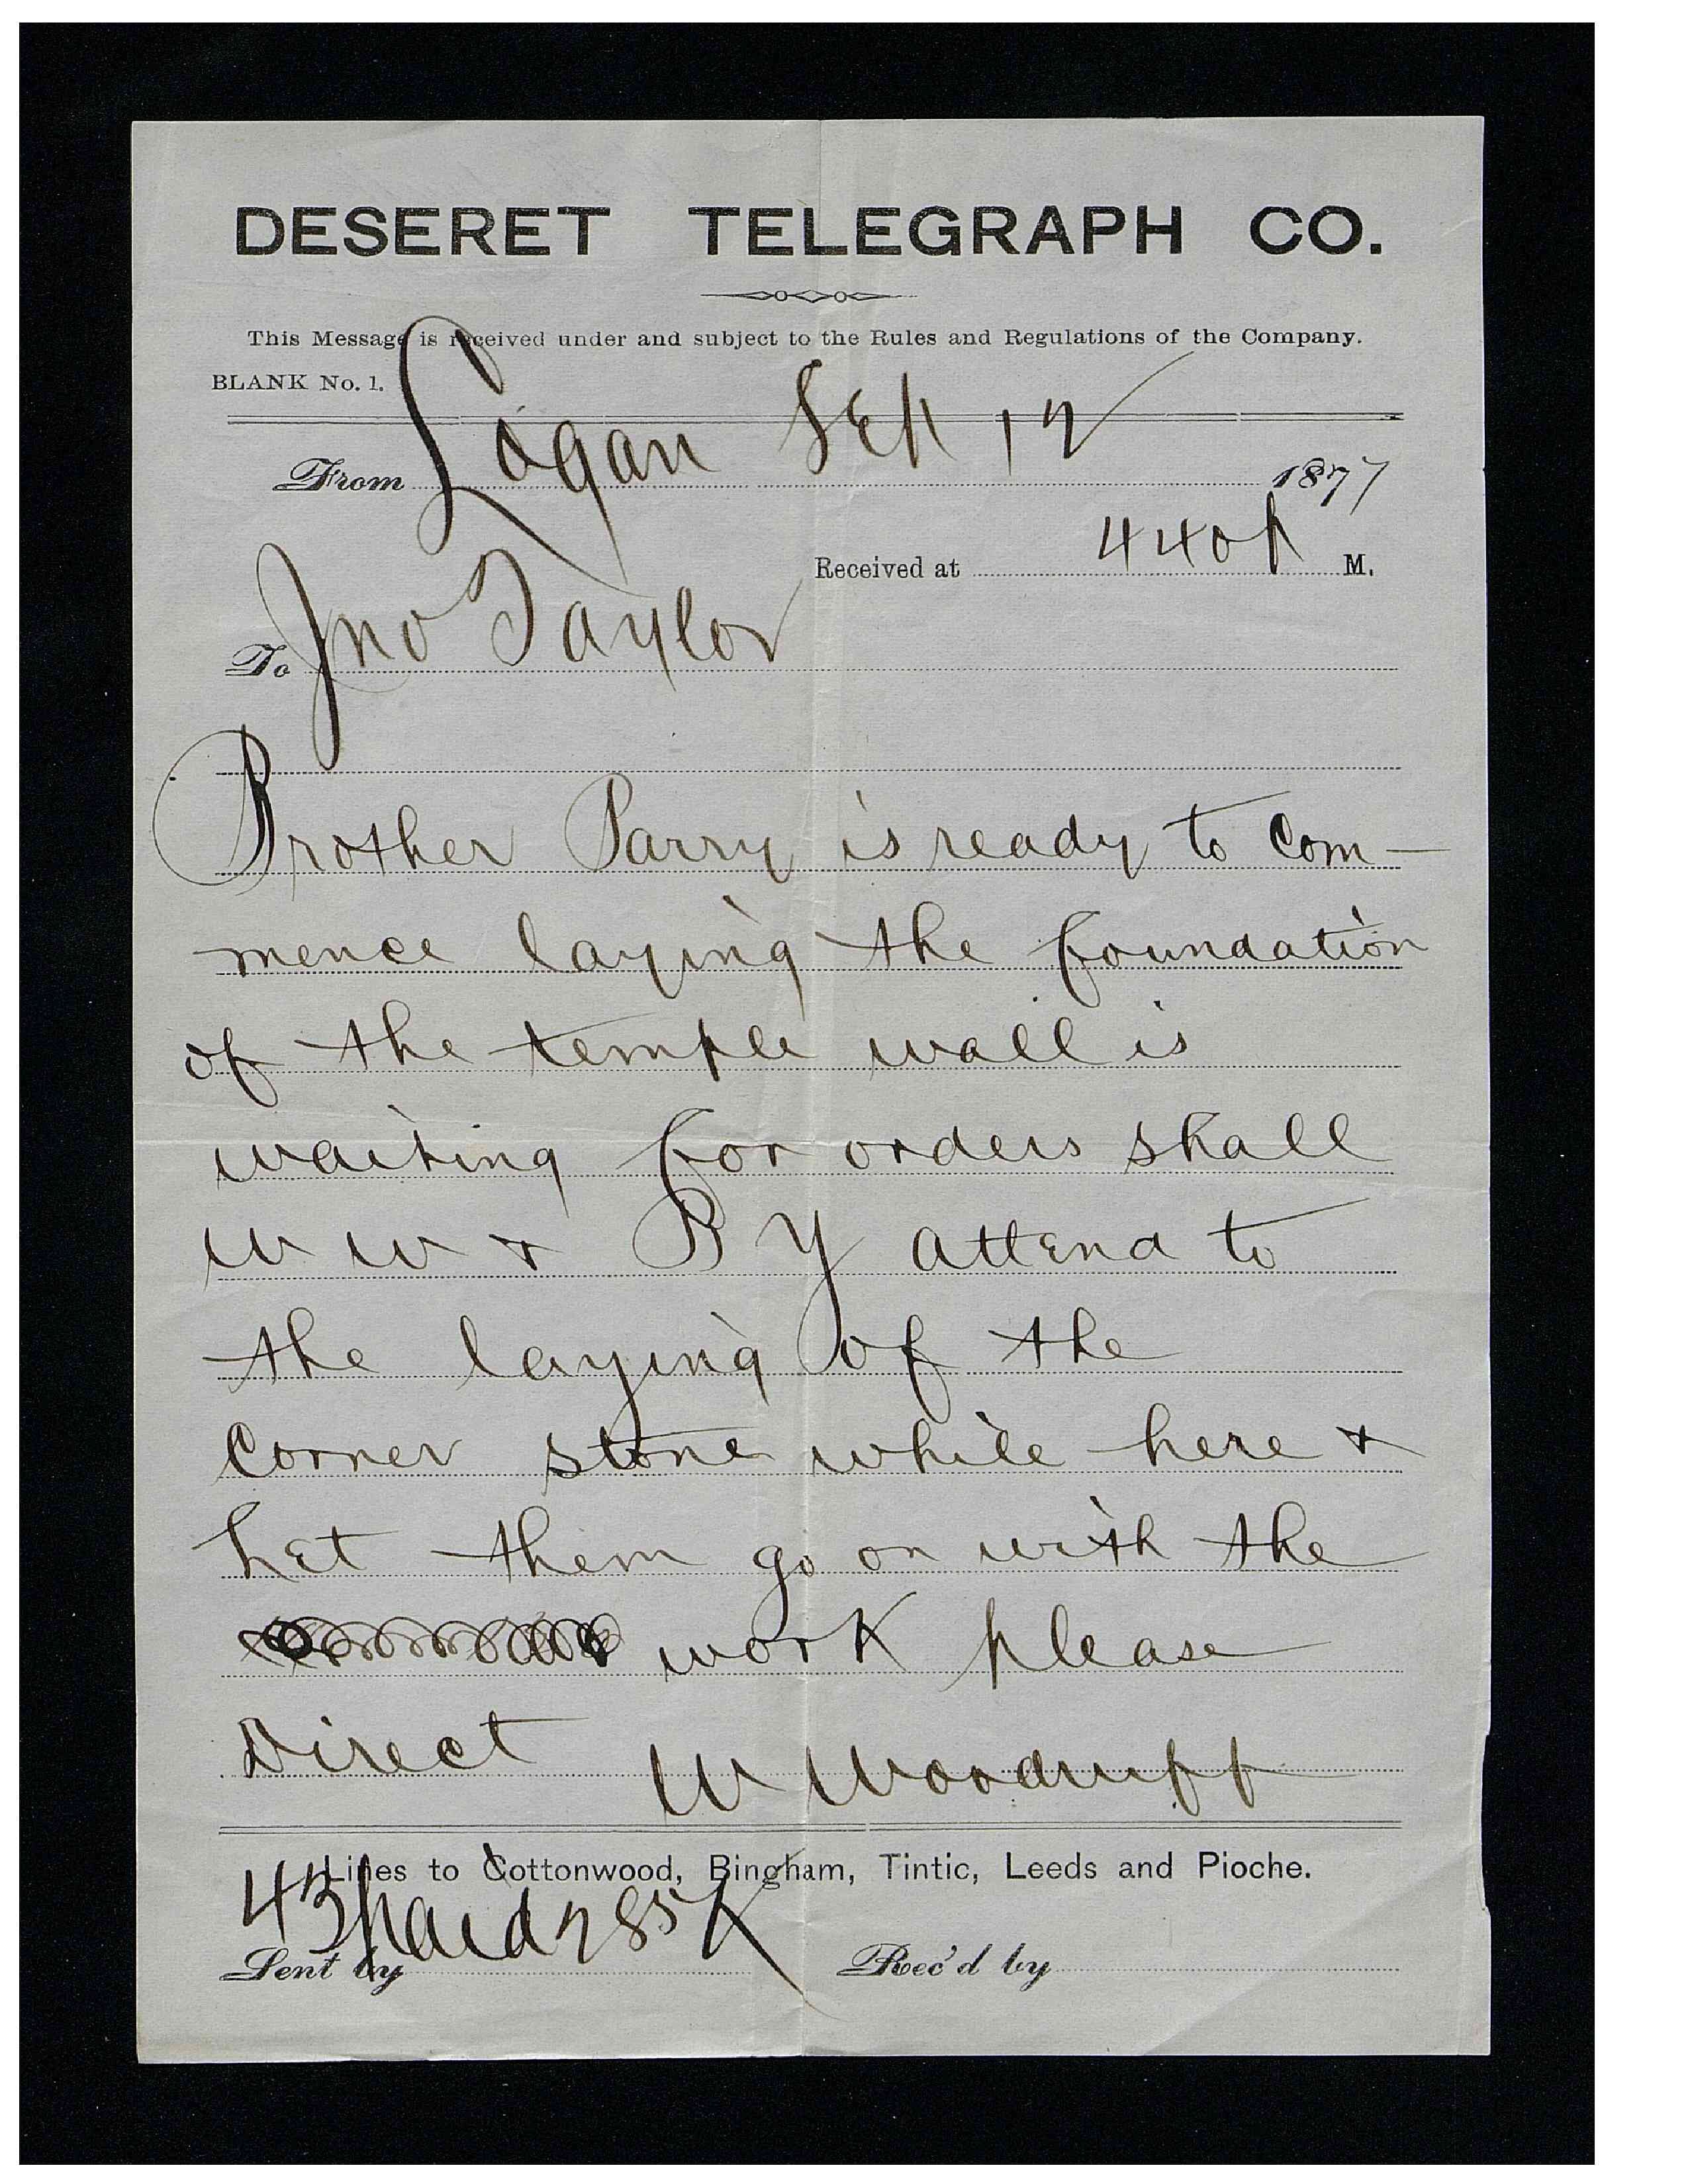 DESERET TELEGRAPH CO.
This Message is received under and subject to the Rules and Regulations of the Company.
BLANK No. 1.
From Logan Sep 12 1877
Received at 440 P M.
To Jno Taylor
Brother Parry is ready to com-
mence laying the foundation
of the temple wall is
waiting for orders shall
W W & B Y attend to
the laying of the
corner stone while here &
let them go on with the
work please
Direct W Woodruff
Lines to Cottonwood, Bingham, Tintic, Leeds and Pioche.
43 paid 285
Sent by Rec'd by